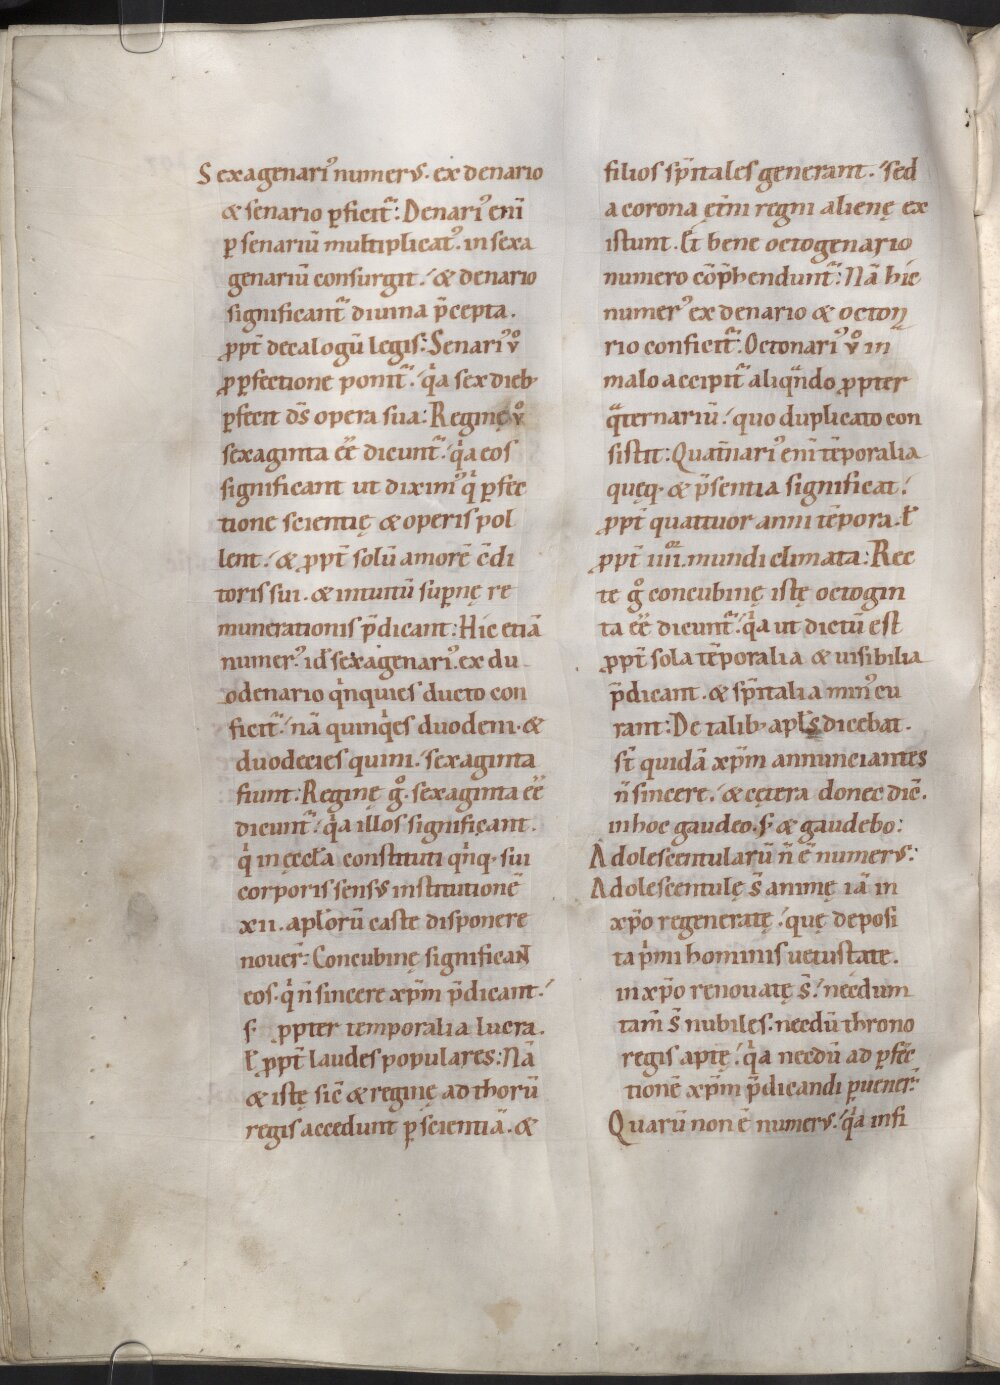 Sexagenari᷒ numerus. ex denario
& senario ꝑficit᷑: Denari᷒ eni̅
ꝑ senariu̅ multiplicat᷒. in sexa
genariu̅ consurgit. & denario
significant᷑ diuina p̅cepta.
ꝓpt̅ decalogu̅ legis: Senari᷒ ỽͦ
ꝓ ꝑfectione ponit᷑. qͥa sex dieb;
ꝑfecit d̅s opera sua: Reginę ỽͦ
sexaginta ee̅ dicunt᷑. qͥa eos
significant ut diximꝰ qͥ ꝑfec
tione scientię & operis pol
lent. & ꝓpt̅ solu̅ amore̅ c̅di
toris sui. & intuitu̅ suꝑnę re
munerationis p̅dicant: Hic etia̅
numer᷒. id̅ sexagenari᷒. ex du
odenario qͥnquies ducto con
ficit᷑. na̅ quinqͥes duodeni. &
duodecies quini. sexaginta
fiunt: Reginę gͦ. sexaginta ee̅
dicunt᷑. qͥa illos significant.
qͥ in ęccl̅a constituti qͥnq; sui
corporis sensus institutione̅
xii. apl̅oru̅ caste disponere
nouer̅: Concubinę significant
eos. qͥ n̅ sincere xp̅m p̅dicant.
s; ꝓpter temporalia lucra.
l̅ ꝓpt̅ laudes populares: Na̅
& istę sic̅ & reginę ad thoru̅
regis accedunt ꝑ scientia̅. &
filios sp̅itales generant. sed
a corona ęt̅ni regni alienę ex
istunt. Et bene octogenario
numero co̅p̅hendunt᷑: Na̅ hic
numer᷒ ex denario & octona
rio conficit᷑. Octonari᷒ ỽͦ in
malo accipit᷑ aliqͣndo ꝓpter
qͣternariu̅. quo duplicato con
sistit: Quat̅nari᷒ eni̅ te̅poralia
quęq; & p̅sentia significat.
ꝓpt̅ quattuor anni te̅pora. l̅
ꝓpt̅ iiiior. mundi climata: Rec
te gͦ concubinę istę octogin
ta ee̅ dicunt᷑. qͥa ut dictu̅ est
ꝓpt̅ sola te̅poralia & uisibilia
p̅dicant. & sp̅italia min᷒ cu
rant: De talib; apl̅s dicebat.
st̅ quida̅ xp̅m annunciantes
n̅ sincere. & cętera donec dic̅.
in hoc gaudeo. s; & gaudebo:
Adolescentularu̅ n̅ e̅ numerus:
Adolescentulę s̅ animę ia̅ in
xp̅o regeneratę. quę deposi
ta pͥmi hominis uetustate.
in xp̅o renouatę s̅. necdum
tam̅ s̅ nubiles. necdu̅ throno
regis aptę. qͥa necdu̅ ad ꝑfec̅
tione̅ xp̅m p̅dicandi ꝑuener̅:
Quaru̅ non e̅ numerus. qͥa infi